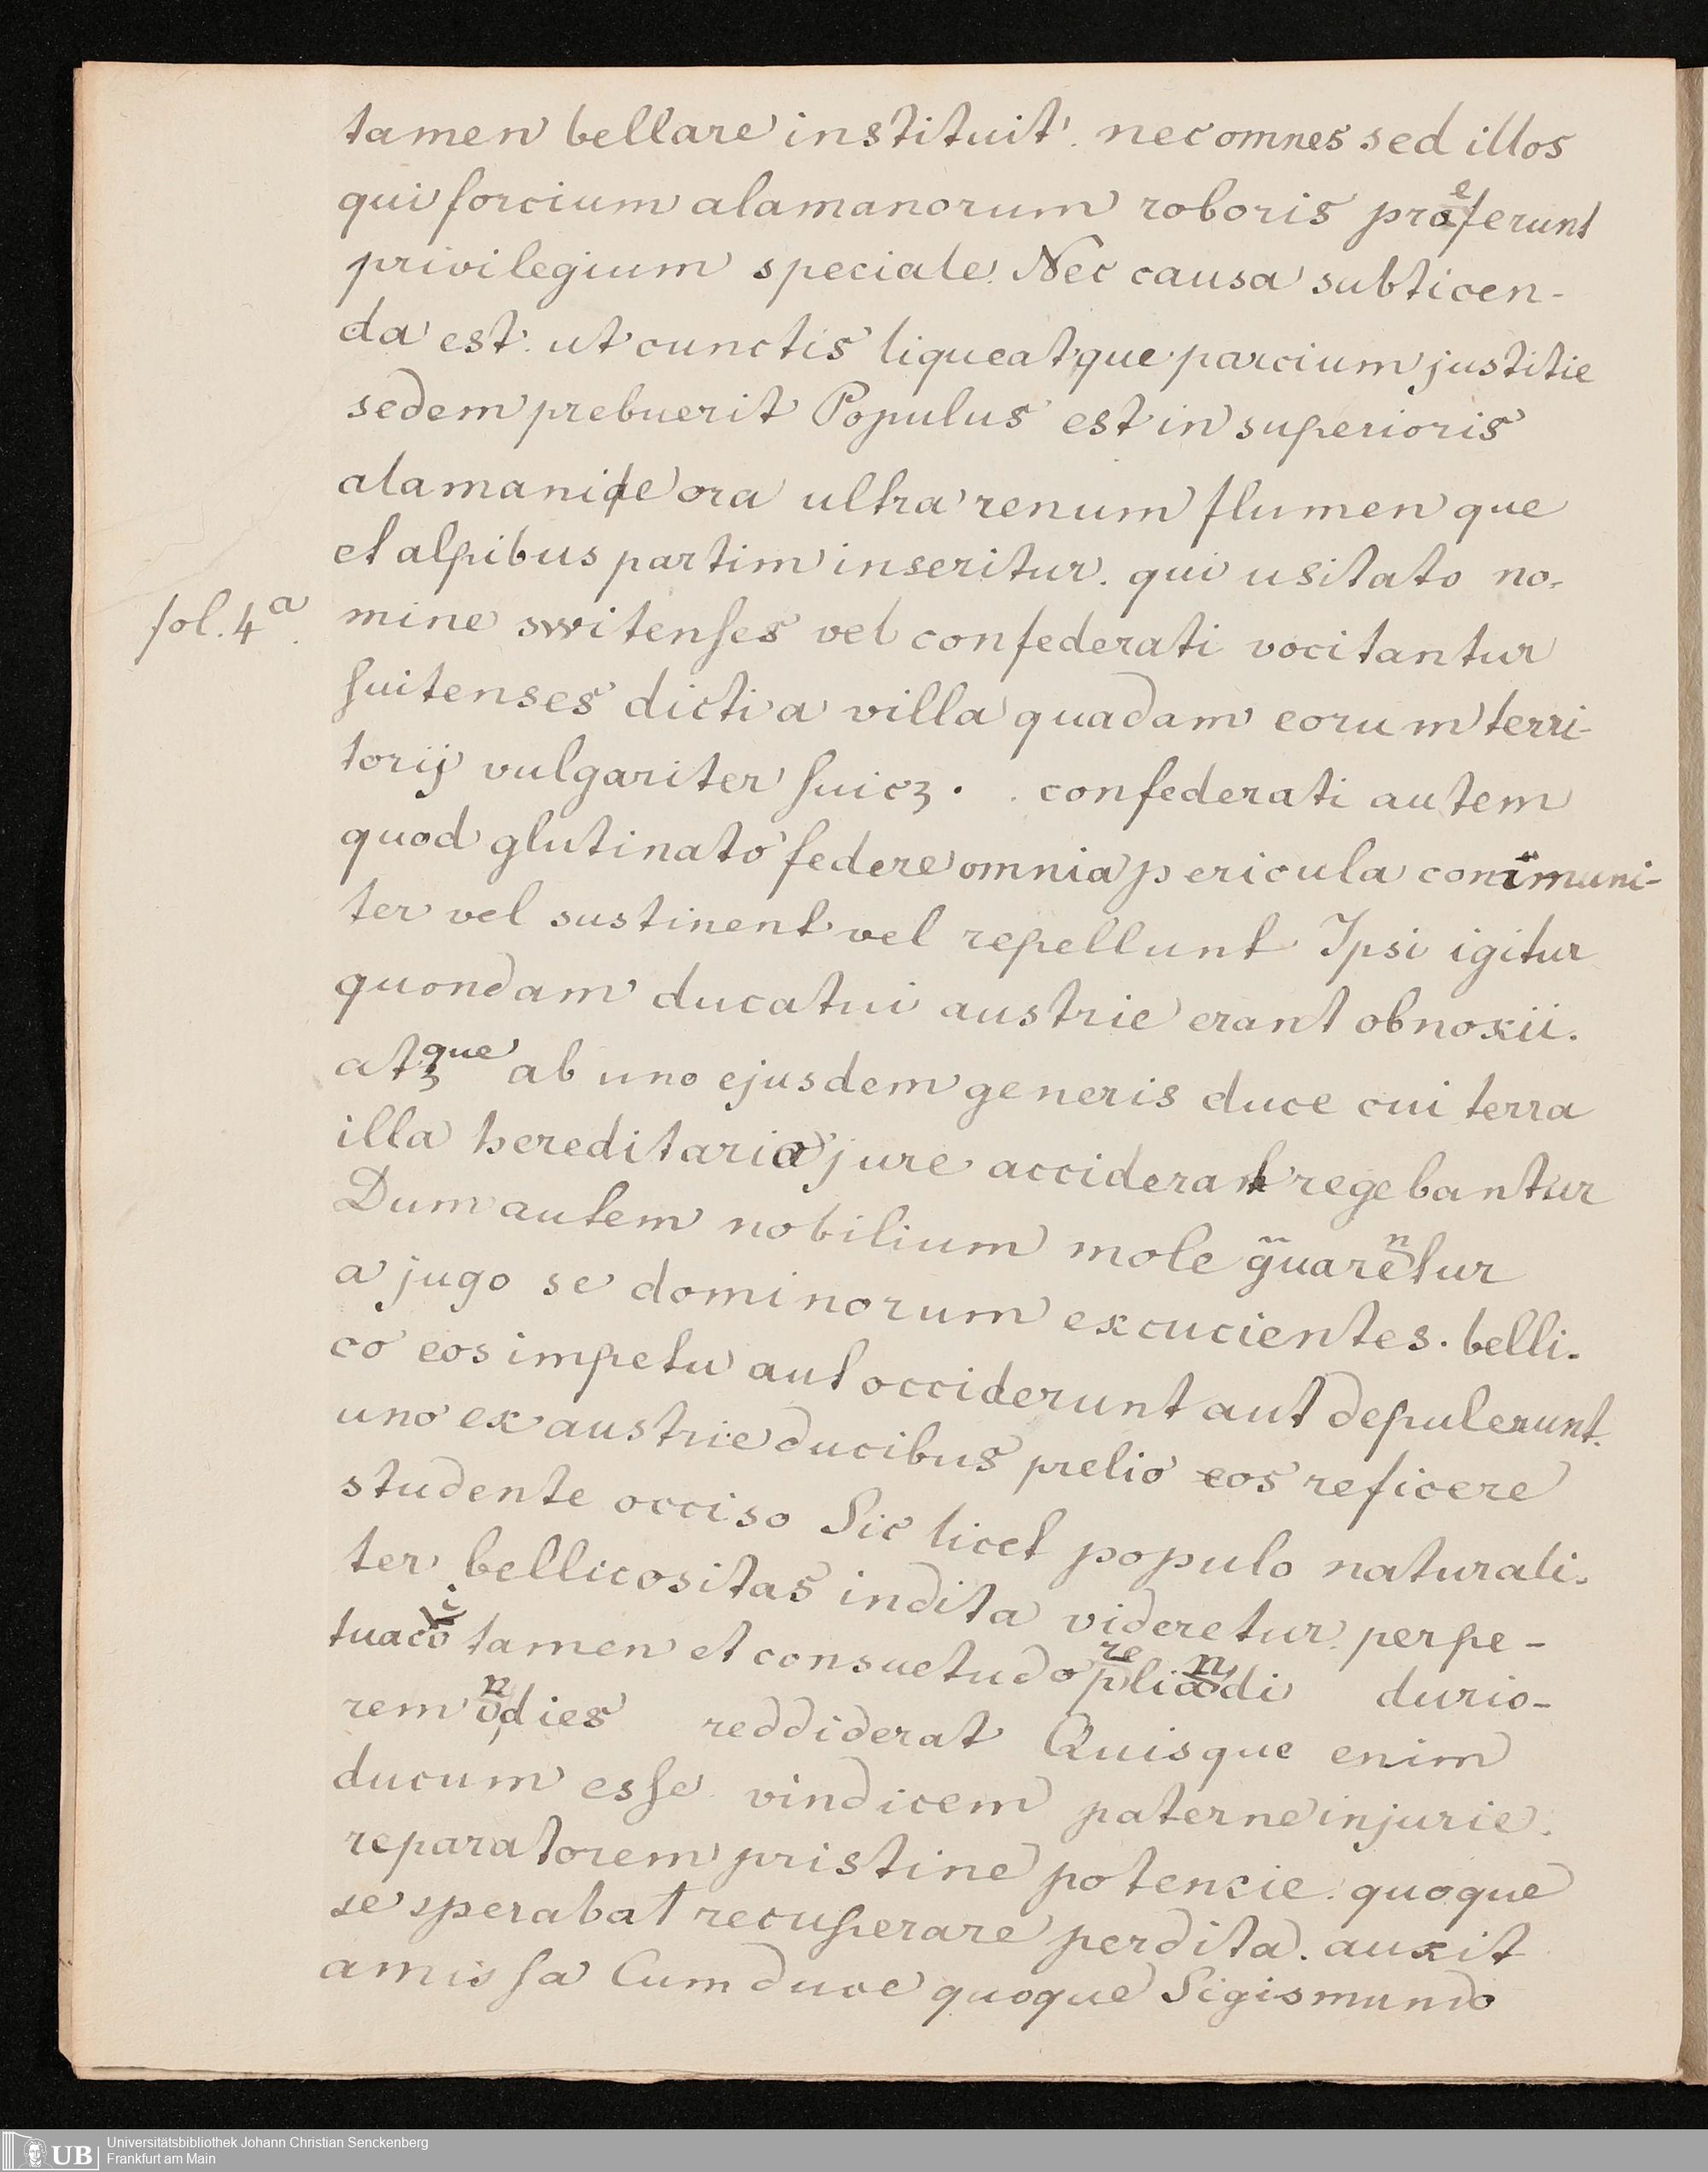 tamen bellare instituit. nec omnes sed illos
qui forcium alamanorum roboris praeferunt
privilegium speciale. Nec causa subticen-
da est. ut cunctis liqueat que parcium justitie
sedem prebuerit Populus est in superioris
alamanie ora ultra renum flumen que
et alpibus partim inseritur. qui usitato no-
fol. 4a.
mine switenses vel confederati vocitantur
suitenses dicti a villa quadam eorum terri-
torij vulgariter suicz. . confederati autem
quod glutinato federe omnia pericula communi-
ter vel sustinent vel repellunt Ipsi igitur
quondam ducatui austrie erant obnoxii.
atque ab uno ejusdem generis duce cui terra
illa hereditario jure acciderat regebantur
Dum autem nobilium mole
a jugo se dominorum excucientes. belli-
co eos impetu aut occiderunt aut depulerunt.
uno ex austrie ducibus prelio eos reficere
studente occiso Sic licet populo naturali-
ter bellicositas indita videretur. perpe-
tua tamen et consuetudo preliandi durio-
rem indies reddiderat Quisque enim
ducum esse vindicem paterne injurie.
reparatorem pristine potencie. quoque
se sperabat recuperare perdita. auxit
amissa Cum duce quoque Sigismundo
UB
Universitätsbibliothek Johann Christian Senckenberg
Frankfurt am Main